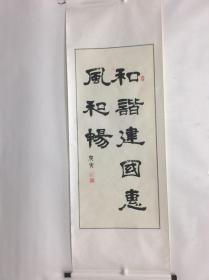 和諧建國惠
風和暢